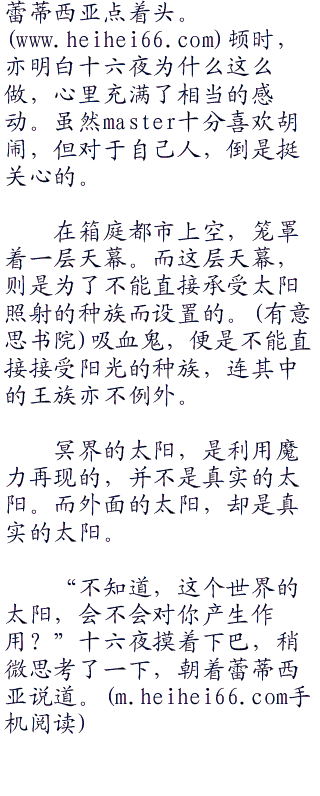 蕾蒂西亚点着头。
(www.heihei66.com)顿时，
亦明白十六夜为什么这么
做，心里充满了相当的感
动。虽然master十分喜欢胡
闹，但对于自己人，倒是挺
关心的。
在箱庭都市上空，笼罩
着一层天幕。而这层天幕，
则是为了不能直接承受太阳
照射的种族而设置的。(有意
思书院)吸血鬼，便是不能直
接接受阳光的种族，连其中
的王族亦不例外。
冥界的太阳，是利用魔
力再现的，并不是真实的太
阳。而外面的太阳，却是真
实的太阳。
“不知道，这个世界的
太阳，会不会对你产生作
用？”十六夜摸着下巴，稍
微思考了一下，朝着蕾蒂西
亚说道。(m.heihei66.com手
机阅读)